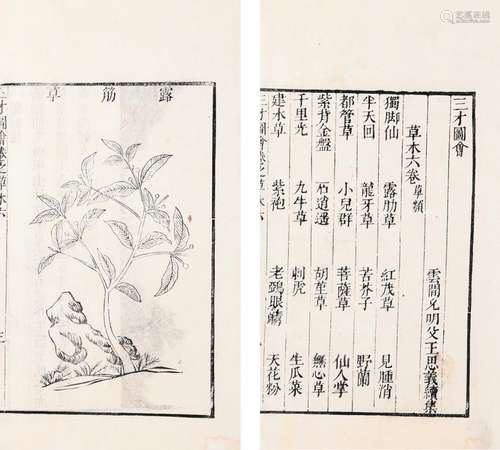 三才圖會
草木六卷 草類
雲間允明父王思義續集
獨脚仙 露肋草 紅茂草 見腫消
半天回 龍牙草 苦芥子 野蘭
都管草 小兒群 菩薩草 仙人掌
紫背金盤 石逍遥 胡堇草 無心草
千里光 九牛草 刺虎 生瓜菜
建水草 紫袍 老鵶眼睛 天花粉
露筋草
三才圖會卷之草木六 三